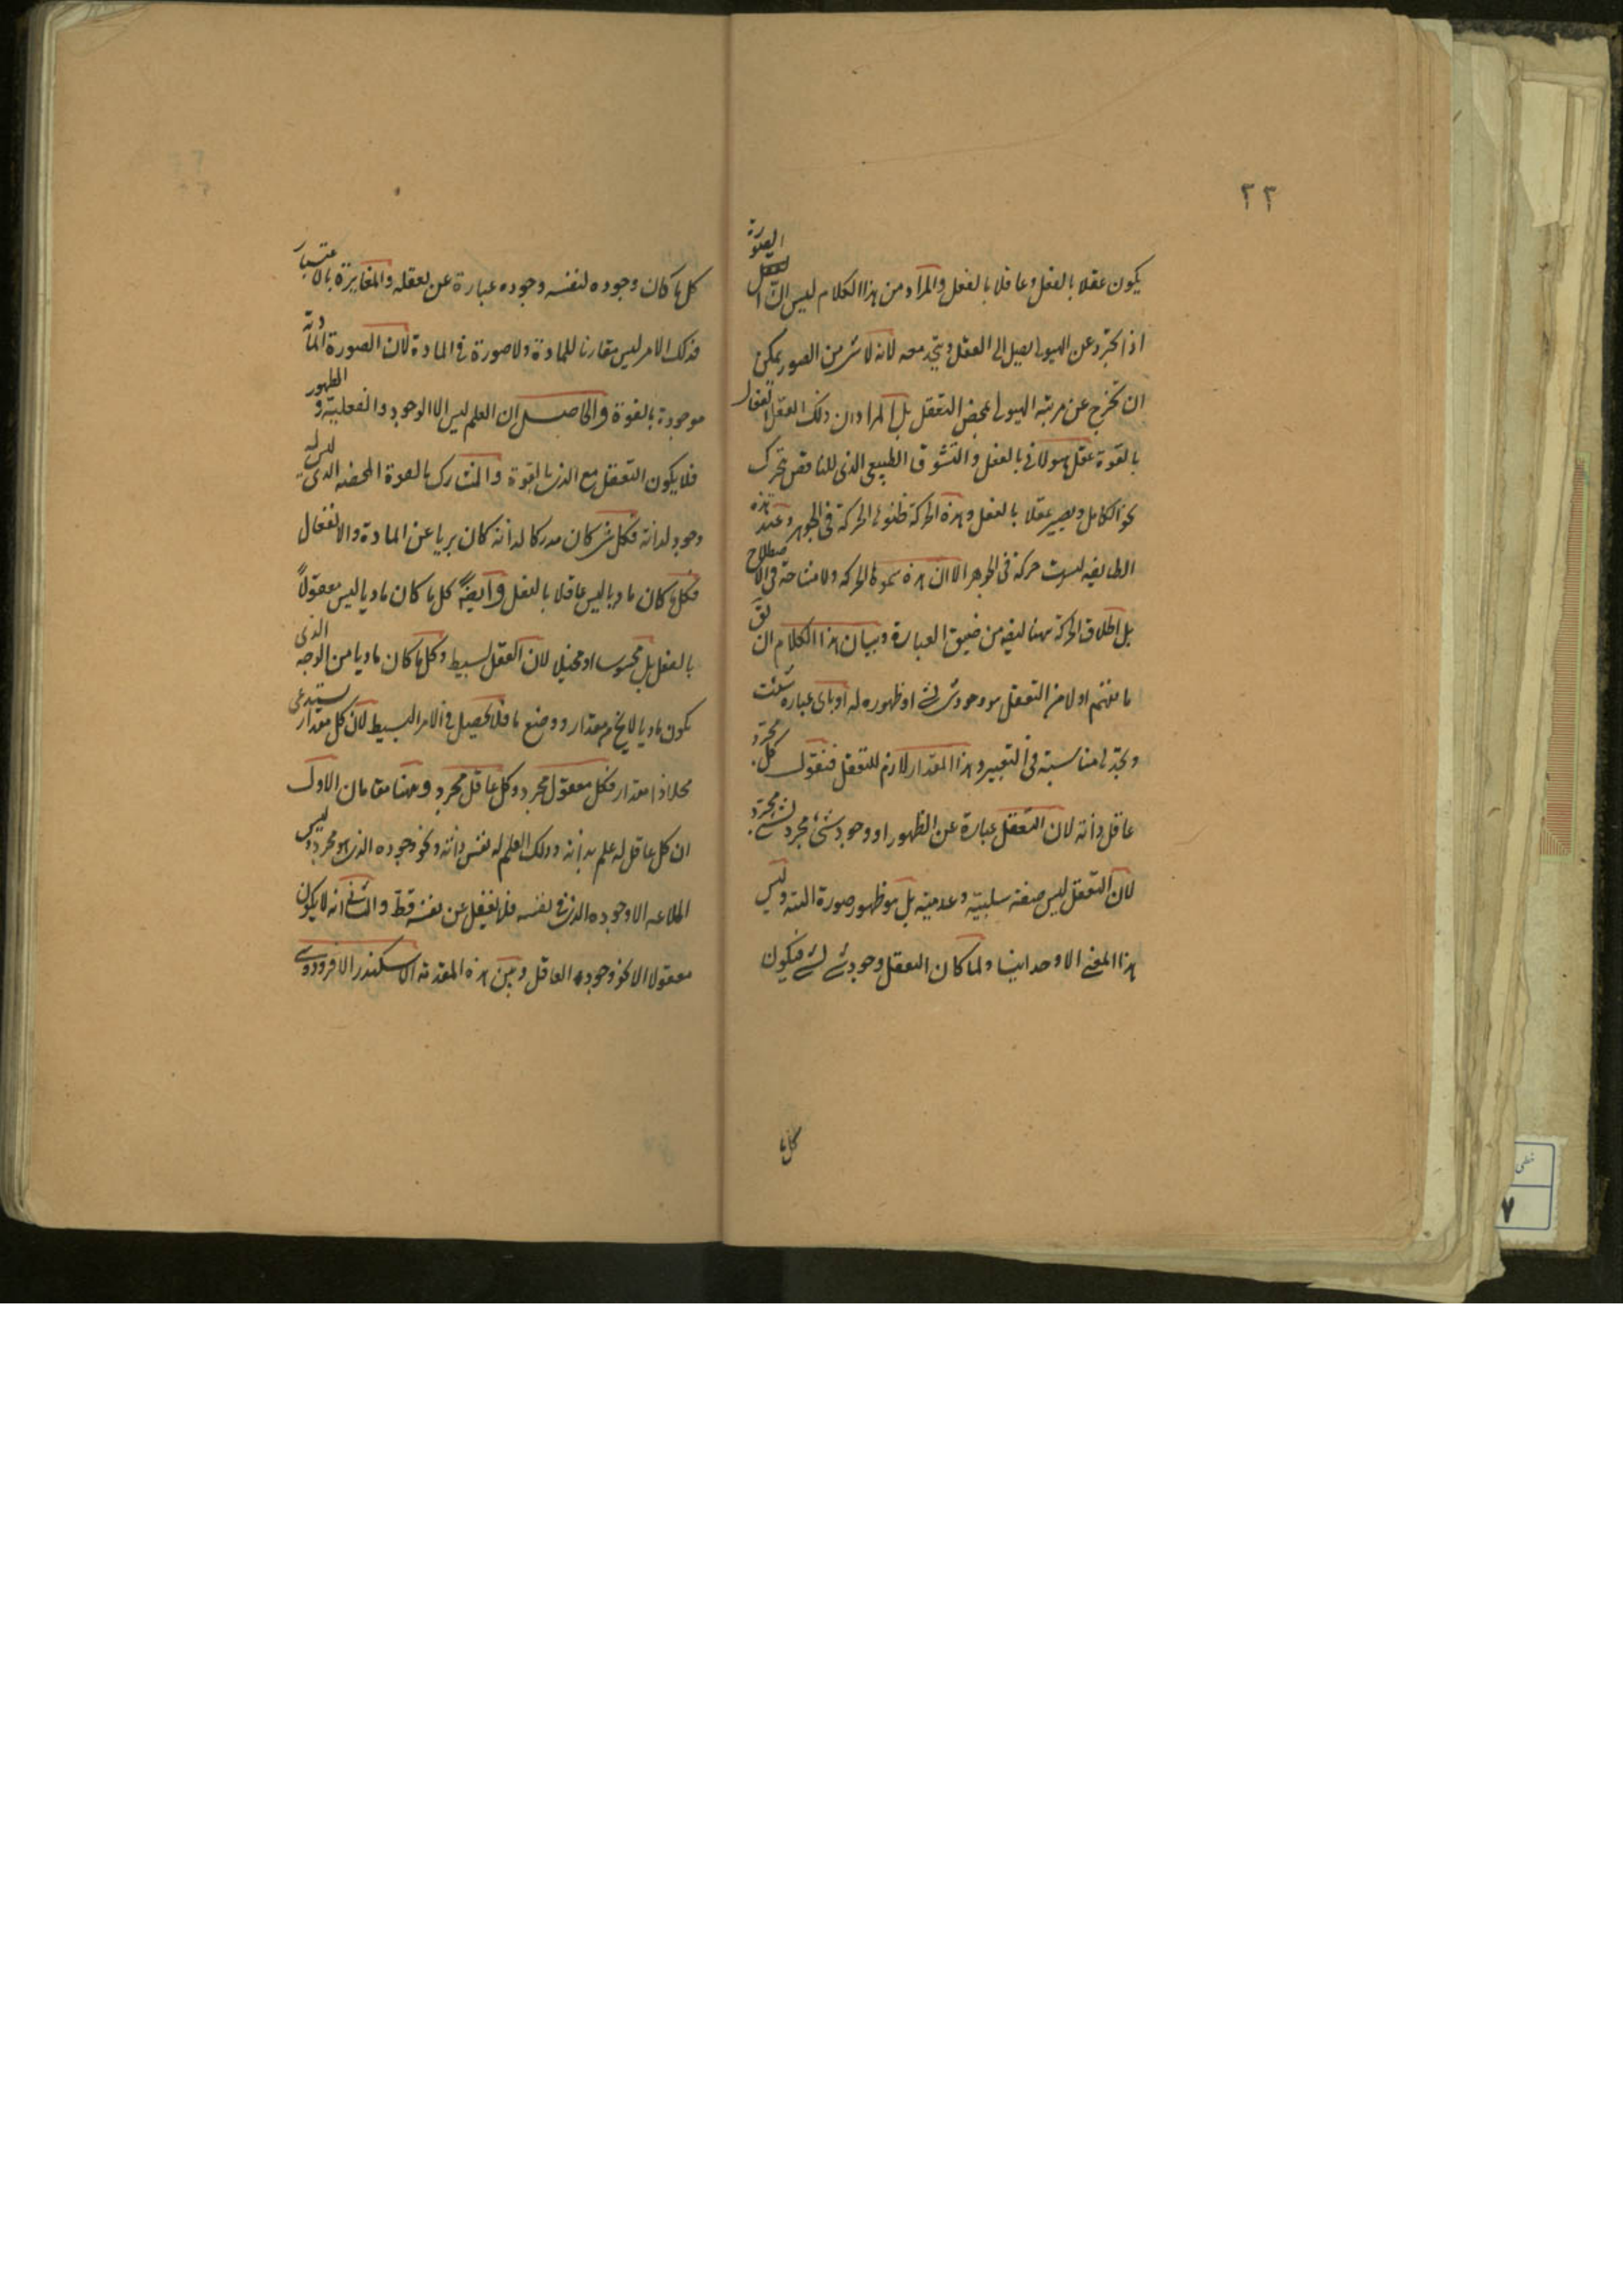 ٢٢
يكون عقلا بالفعل وعاقلا بالفعل والمراد من هذا الكلام ليس ان الصورة
اذا تجرد عن الهيولى يصل الى العقل ويتحد معه لانه لا شئ من الصور يمكن
ان تخرج عن مرتبه الهيولى بمحض التعقل بل المراد ان ذلك العقل الفعال
بالقوة عقل هيولانى بالفعل والتشوق الطبيعى الذى للناقص يتحرك
نحو الكامل ويصير عقلا بالفعل وهذه الحركة ظنوها الحركة فى الجوهر وعند هذه
الطايفه ليست حركة فى الجوهر الا ان هذه سموها الحركه ولا مشاحة فى الاصطلاح
بل اطلاق الحركة هنا من ضيق العبارة وبيان هذا الكلام ان
ما نفهم اولا من التعقل هو وجود شئ لشئ او ظهوره له او باى عباره شئت
وتجد لها مناسبته فى التعبير وهذا المقدار لازم للتعقل فنقول كل مجرد
عاقل ذاته لان التعقل عبارة عن الظهور او وجود شئ مجرد لشئ مجرد
لان التعقل ليس صفته سلبيته وعدميته بل هو ظهور صورة البته وليس
هذا المعنى الا وحدانيا ولما كان التعقل وجود شئ لشئ فيكون
كل ما
كل ما كان وجوده لنفسه وجوده عبارة عن تعقله والمغايرة بالاعتبار
فذلك الامر ليس مقارنا للمادة ولا صورة فى المادة لان الصورة المادية
موجودة بالقوة والحاصل ان العلم ليس الا الوجود والفعلية والظهور
فلا يكون التعقل مع الذى بالقوة والمشارك بالقوة المحضه الذى ليس له
وجود لذاته فكل شئ كان مدركا لذاته كان بريا عن المادة والانفعال
فكل ما كان ماديا ليس عاقلا بالفعل وايضا كل ما كان ماديا ليس معقولا
بالفعل بل محسوسا او مخيلا لان العقل بسيط وكل ما كان ماديا من الوجه الذى
يكون ماديا لا يخ من مقدار ووضع ما فلا يحصل فى الامر البسيط لان كل مقدار يستدعى
محلا ذا مقدار فكل معقول مجرد وكل عاقل مجرد وههنا مقامان الاول
ان كل عاقل له علم بذاته وذلك العلم له نفس ذاته ونحو وجوده الذى هو مجرد وليس
اطلاعه الا وجوده الذى فى نفسه فلا يغفل عن نفسه قط والثانى انه لا يكون
معقولا الا نحو وجوده العاقل وبين هذه المقدمة الاسكندر الافرودوسى